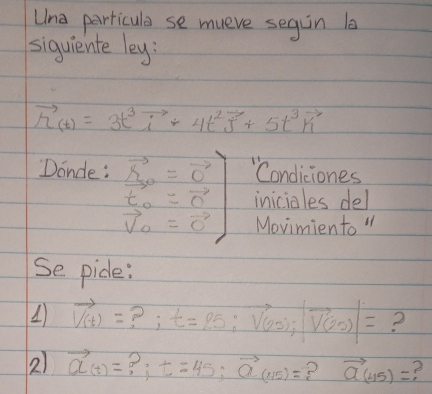 Una partícula se mueve según la
siguiente ley:
r⃗(t) = 3t³ i⃗ + 4t² j⃗ + 5t³ k⃗
Dónde: r⃗₀ = 0⃗ "Condiciones
t⃗₀ = 0⃗ iniciales del
V⃗₀ = 0⃗ Movimiento"
Se pide:
1) V⃗(t) = ? ; t = 2s ; V⃗(2s) ; |V⃗(2s)| = ?
2) a⃗(t) = ? ; t = 4s ; a⃗(4s) = ? a⃗(4s) = ?